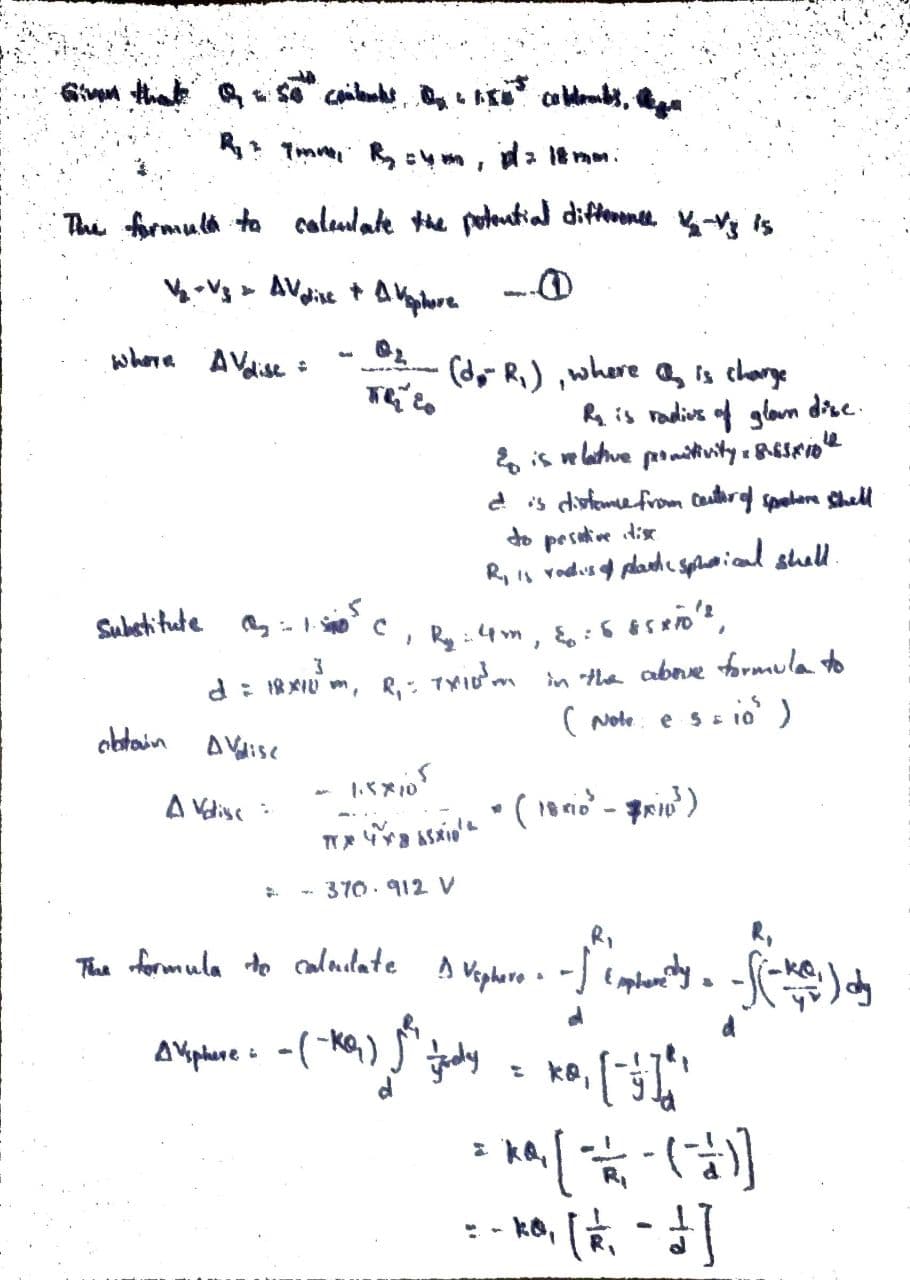 Given that Q₁ = 5e⁻¹⁰ coulombs, Q₂ = 1.5e⁻⁵ coulombs,
R₁ = 7mm, R₂ = 4 m, d = 18 mm.
The formula to calculate the potential difference V₂-V₃ is
V₂-V₃ = ΔVdisc + ΔVsphere --- ①
where ΔVdisc = - Q₂ / πR₂² ε₀ (d - R₁), where Q₂ is charge
R₂ is radius of disc.
ε₀ is relative = 8.85×10⁻¹²
d is distance from center of shell
to disc
R₁ is radius of plastic spherical shell.
Substitute Q₂ = C, R₂ = 4m, ε₀ = 8.85×10⁻¹²,
d = 18×10⁻³ m, R₁ = 7×10⁻³ m in the above formula to
(Note: e 5 = 10⁵)
obtain ΔVdisc
ΔVdisc = - 1.5×10⁻⁵ / π × 4² × 8.85×10⁻¹² × (18×10⁻³ - 7×10⁻³)
= - 370.912 V
The formula to calculate ΔVsphere = -∫_d^R₁ Esphere dy = -∫_d^R₁ (-kQ₁/y²) dy
ΔVsphere = -(-kQ₁) ∫_d^R₁ 1/y² dy = kQ₁ [-1/y]_d^R₁
= kQ₁ [-1/R₁ - (-1/d)]
= - kQ₁ [1/R₁ - 1/d]